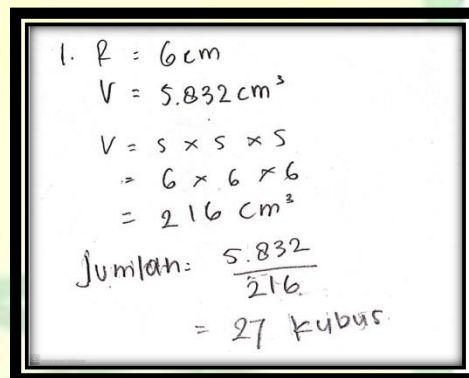 1. R = 6 cm
V = 5.832 cm³
V = s × s × s
= 6 × 6 × 6
= 216 cm³
Jumlah = 5.832
216
= 27 kubus